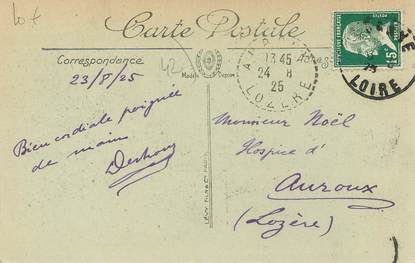 Lot
Carte Postale
Correspondance
Modèle Déposé
23/8/25
13 45
24 8
25
LOZERE
15
LOIRE
Bien cordiale poignée
de main
Monsieur Noël
Hospice d'
Auroux
(Lozère)